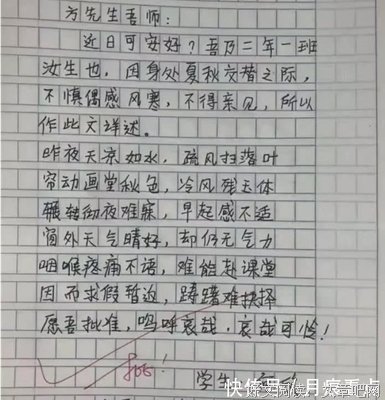 方先生吾师：
近日可安好？吾乃二年一班
汝生也，因身处夏秋交替之际，
不慎偶感风寒，不得亲见，所以
作此文详述。
昨夜天凉如水，疏风扫落叶
帘动画堂秋色，冷风残玉体
辗转彻夜难寐，早起感不适
窗外天气晴好，却仍无气力
咽喉疼痛不语，难能赴课堂
因而求假暂返，踌躇难抉择
愿吾批准，呜呼哀哉，哀哉可怜！
学生
快传号/月度重点